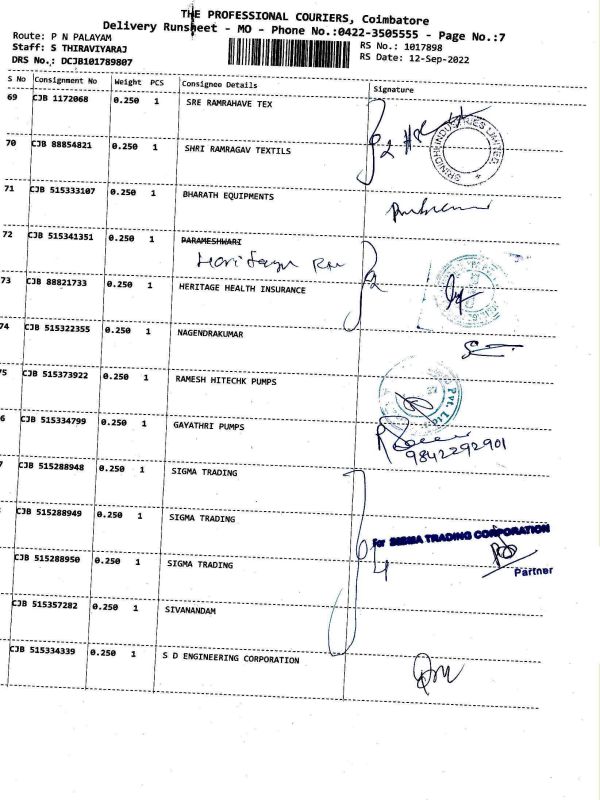 THE PROFESSIONAL COURIERS, Coimbatore
Delivery Runsheet - MO - Phone No.:0422-3505555 - Page No.:7
Route: P N PALAYAM
Staff: S THIRAVIYARAJ
DRS No.: DCJB101789807
RS No.: 1017898
RS Date: 12-Sep-2022
S No Consignment No Weight PCS Consignee Details Signature
69 CJB 1172068 0.250 1 SRE RAMRAHAVE TEX
70 CJB 88854821 0.250 1 SHRI RAMRAGAV TEXTILS
2
SRINIDHI INDUSTRIES LIMITED
71 CJB 515333107 0.250 1 BHARATH EQUIPMENTS
72 CJB 515341351 0.250 1 PARAMESHWARI
73 CJB 88821733 0.250 1 HERITAGE HEALTH INSURANCE
2
74 CJB 515322355 0.250 1 NAGENDRAKUMAR
75 CJB 515373922 0.250 1 RAMESH HITECHK PUMPS
Pvt. Ltd.
6 CJB 515334799 0.250 1 GAYATHRI PUMPS
9842292901
7 CJB 515288948 0.250 1 SIGMA TRADING
CJB 515288949 0.250 1 SIGMA TRADING
For SIGMA TRADING CORPORATION
CJB 515288950 0.250 1 SIGMA TRADING
4
Partner
CJB 515357282 0.250 1 SIVANANDAM
CJB 515334339 0.250 1 S D ENGINEERING CORPORATION